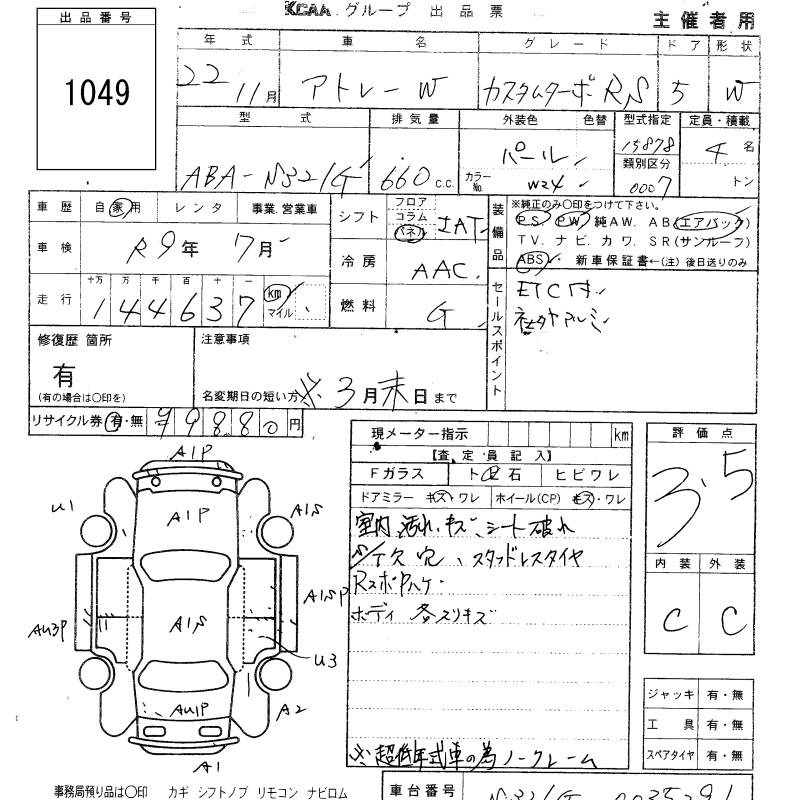 KCAA グループ 出品票 主催者用
出品番号
1049
年式 車名 グレード ドア 形状
22 11月 アトレーW カスタムターボRS 5 W
型式 排気量 外装色 色替 型式指定 定員・積載
ABA-S321G 660 c.c. パール 15878 4 名
カラーNo. W24 類別区分 0007 トン
車歴 自家用 レンタ 事業.営業車
車検 R9年 7月
走行 十万 万 千 百 十 一
144637 km マイル
シフト フロア コラム パネ IAT
冷房 AAC
燃料 G
装備品 ※純正のみ〇印をつけて下さい。
PS. PW. 純AW. AB(エアバック)
TV. ナビ. カワ. SR(サンルーフ)
ABS. 新車保証書←(注)後日送りのみ
セールスポイント
ETC付
社外アルミ
修復歴 箇所
有
(有の場合は〇印を)
注意事項
名変期日の短い方 ※3月末日まで
リサイクル券 有・無 ¥9880円
現メーター指示 km
【査定員記入】
Fガラス ト石 ヒビワレ
ドアミラー キズ・ワレ ホイール(CP) キズ・ワレ
室内 汚れ.キズ、シート破れ
穴、スタッドレスタイヤ
RスポPハゲ
ボディ 各スリキズ
※超低年式車の為ノークレーム
評価点
3.5
内装 外装
C C
ジャッキ 有・無
工具 有・無
スペアタイヤ 有・無
A1P
U1
A1P
A1S
A1SP
A1S
AU3P
U3
AU1P
A2
A1
事務局預り品は〇印 カギ シフトノブ リモコン ナビロム
車台番号 S321G